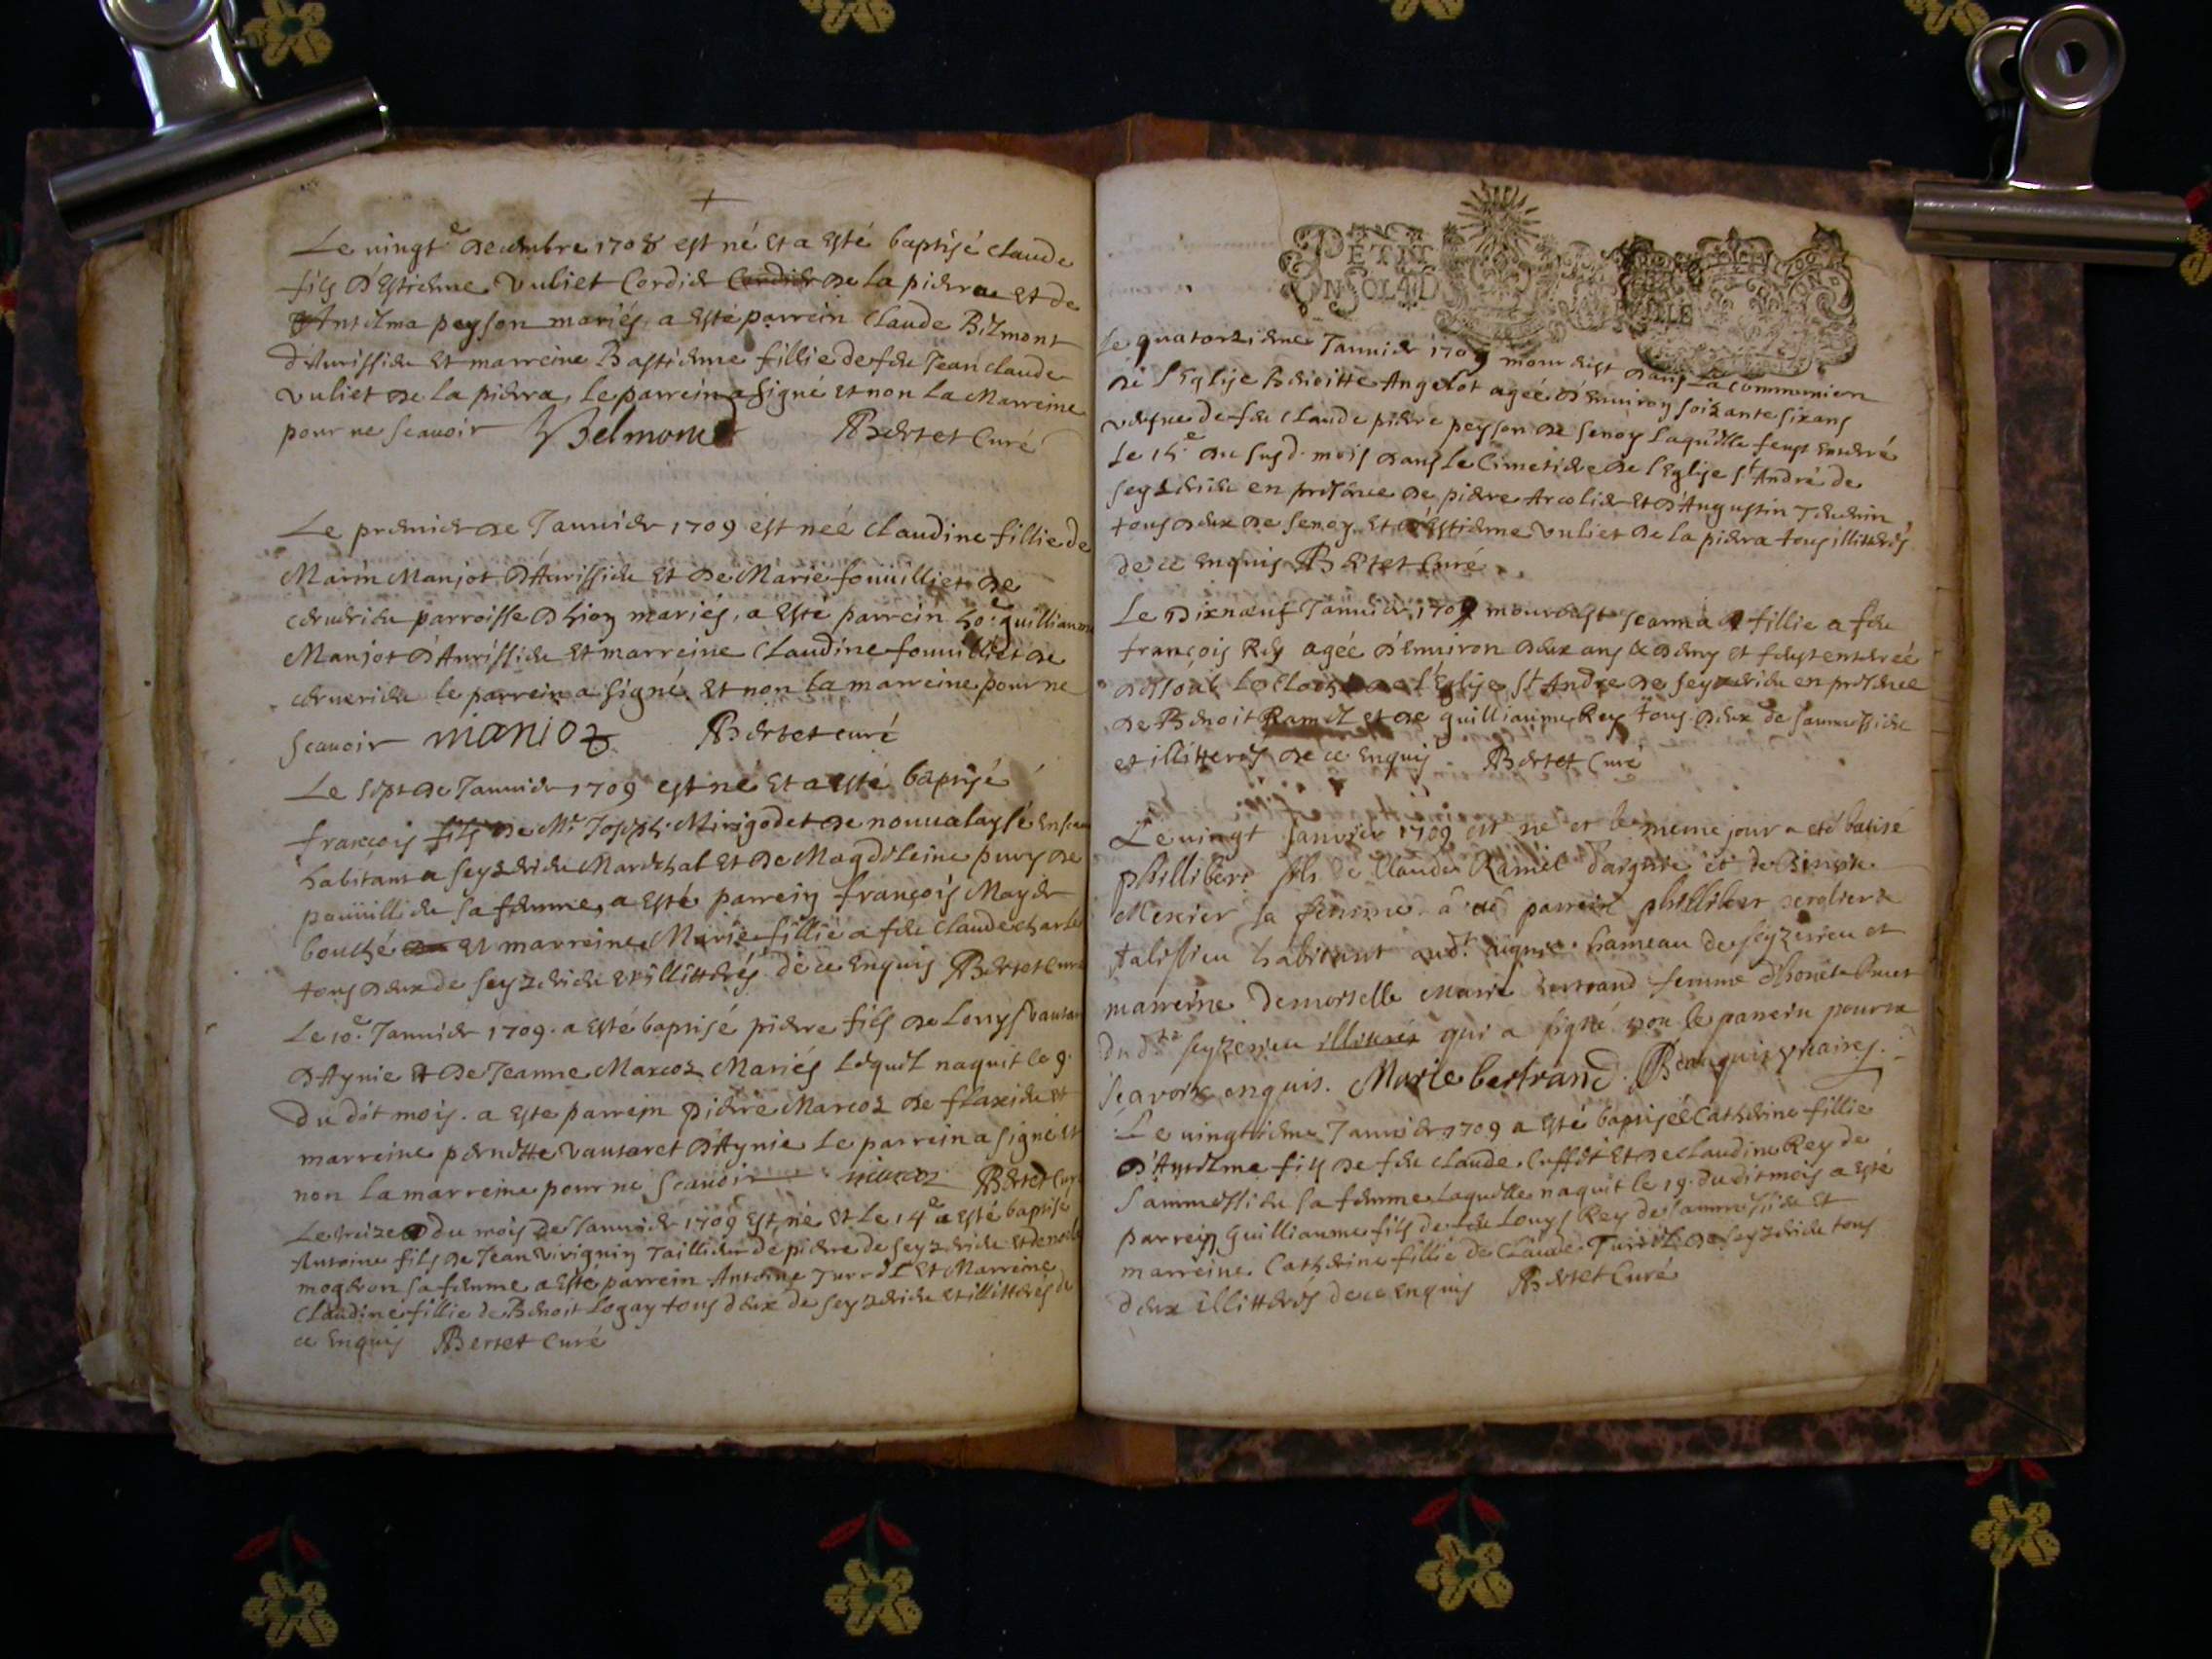 Le vingt.e decembre 1708 est né et a esté baptisé claude
fils d'Estienne Vuliet Cordier Cordier de la pierra et de
Antelma peyson mariés, a esté parrein Claude Belmont
d'Avrissieu et marreine Bastienne fillie de feu Jean claude
Vuliet de la pierra, le parrein a signé et non la Marreine
pour ne scauoir Belmont Bertet Curé
Le premier de Januier 1709 est neé claudine fillie de
Marin Manjot d'Avrissieu et de Marie fouuilliet de
parroisse d'hion mariés, a esté parrein ho.e guilliaume
Manjot d'Avrissieu et marreine Claudine fouuilliet de
le parrein a signé et non la marreine pour ne
scauoir manioz Bertet curé
Le sept de Januier 1709 est né et a esté baptisé
françois fils de M.e Joseph Mirigodet de nouualaysé en
habitant a seyzerieu Maréchal et de Magdeleine de
sa femme, a esté parrein françois Mayer
bouché et marreine Marie fillie a feu Claude charle
tous deux de seyzerieu et illitterés de ce enquis Bertet Curé
Le 10.e Januier 1709. a esté baptisé pierre fils de Louys Vautaret
d'Aynie et de Jeanne Marcoz Mariés lequel naquit le 9.
du dit mois. a este parrein pierre Marcoz de flaxieu et
marreine pernette Vautaret d'Aynie Le parrein a signé et
non la marreine pour ne scauoir marcoz Bertet Curé
Le treize du mois de Januier 1709 est né et le 14.e a esté baptisé
Antoine fils de Jean Vivignin Taillieur de pierre de seyzerieu et de
sa femme a esté parrein Antoine Turrel et Marreine
Claudine fillie de Benoit Logay tous deux de seyzerieu et illitterés de
ce enquis Bertet Curé
PETIT
EN SOL 4 D
Le quatorzieme Januier 1709 mourust dans La communion
de l'Eglise Benoitte Angelot agée d'enuiron soixante six ans
vefue de feu claude pierre peyson de senoy Laquelle feust enterré
le 15.e du susd. mois dans Le Cimetiere de l'Eglise S.t André de
seyzerieu en presence de pierre Arcolier et d'Augustin
tous deux de senoy et d'Estienne Vuliet de la pierra tous illitterés
de ce enquis Bertet Curé
Le dixneuf Januier 1709 mourust Jeanna fillie a feu
françois Rey agée d'enuiron deux ans & demy et feust enterreé
dessoub Le clocher de l'Eglise S.t André de seyzerieu en presence
de Benoit Ramel et de guilliaume Rey tous deux de sammessieu
et illitterés de ce enquis Bertet Curé
Le vingt Janvier 1709 est né et le meme jour a eté batisé
phillibert fils de Claude Ramel d'aignie et de Benoite
Mexier sa femme a eté parrein phillibert
talissieu habitant aud.t aignie hameau de seyzerieu et
marreine demoiselle Marie bertrand femme d'honete
du d.t seyzerieu illiterés qui a signé non le parrein pour ne
scavoir enquis. Marie bertrand. Beauquis vicaire.
Le vingtieme Januier 1709 a esté baptiseé Catherine fillie
d'Antelme fils de feu claude Cuffet et de Claudine Rey de
Sammessieu sa femme Laquelle naquit le 19. du dit mois a esté
parrein Guilliaume fils de feu Louys Rey de sammessieu et
marreine Catherine fillie de Claude Turrel de seyzerieu tous
deux illitterés de ce enquis Bertet Curé